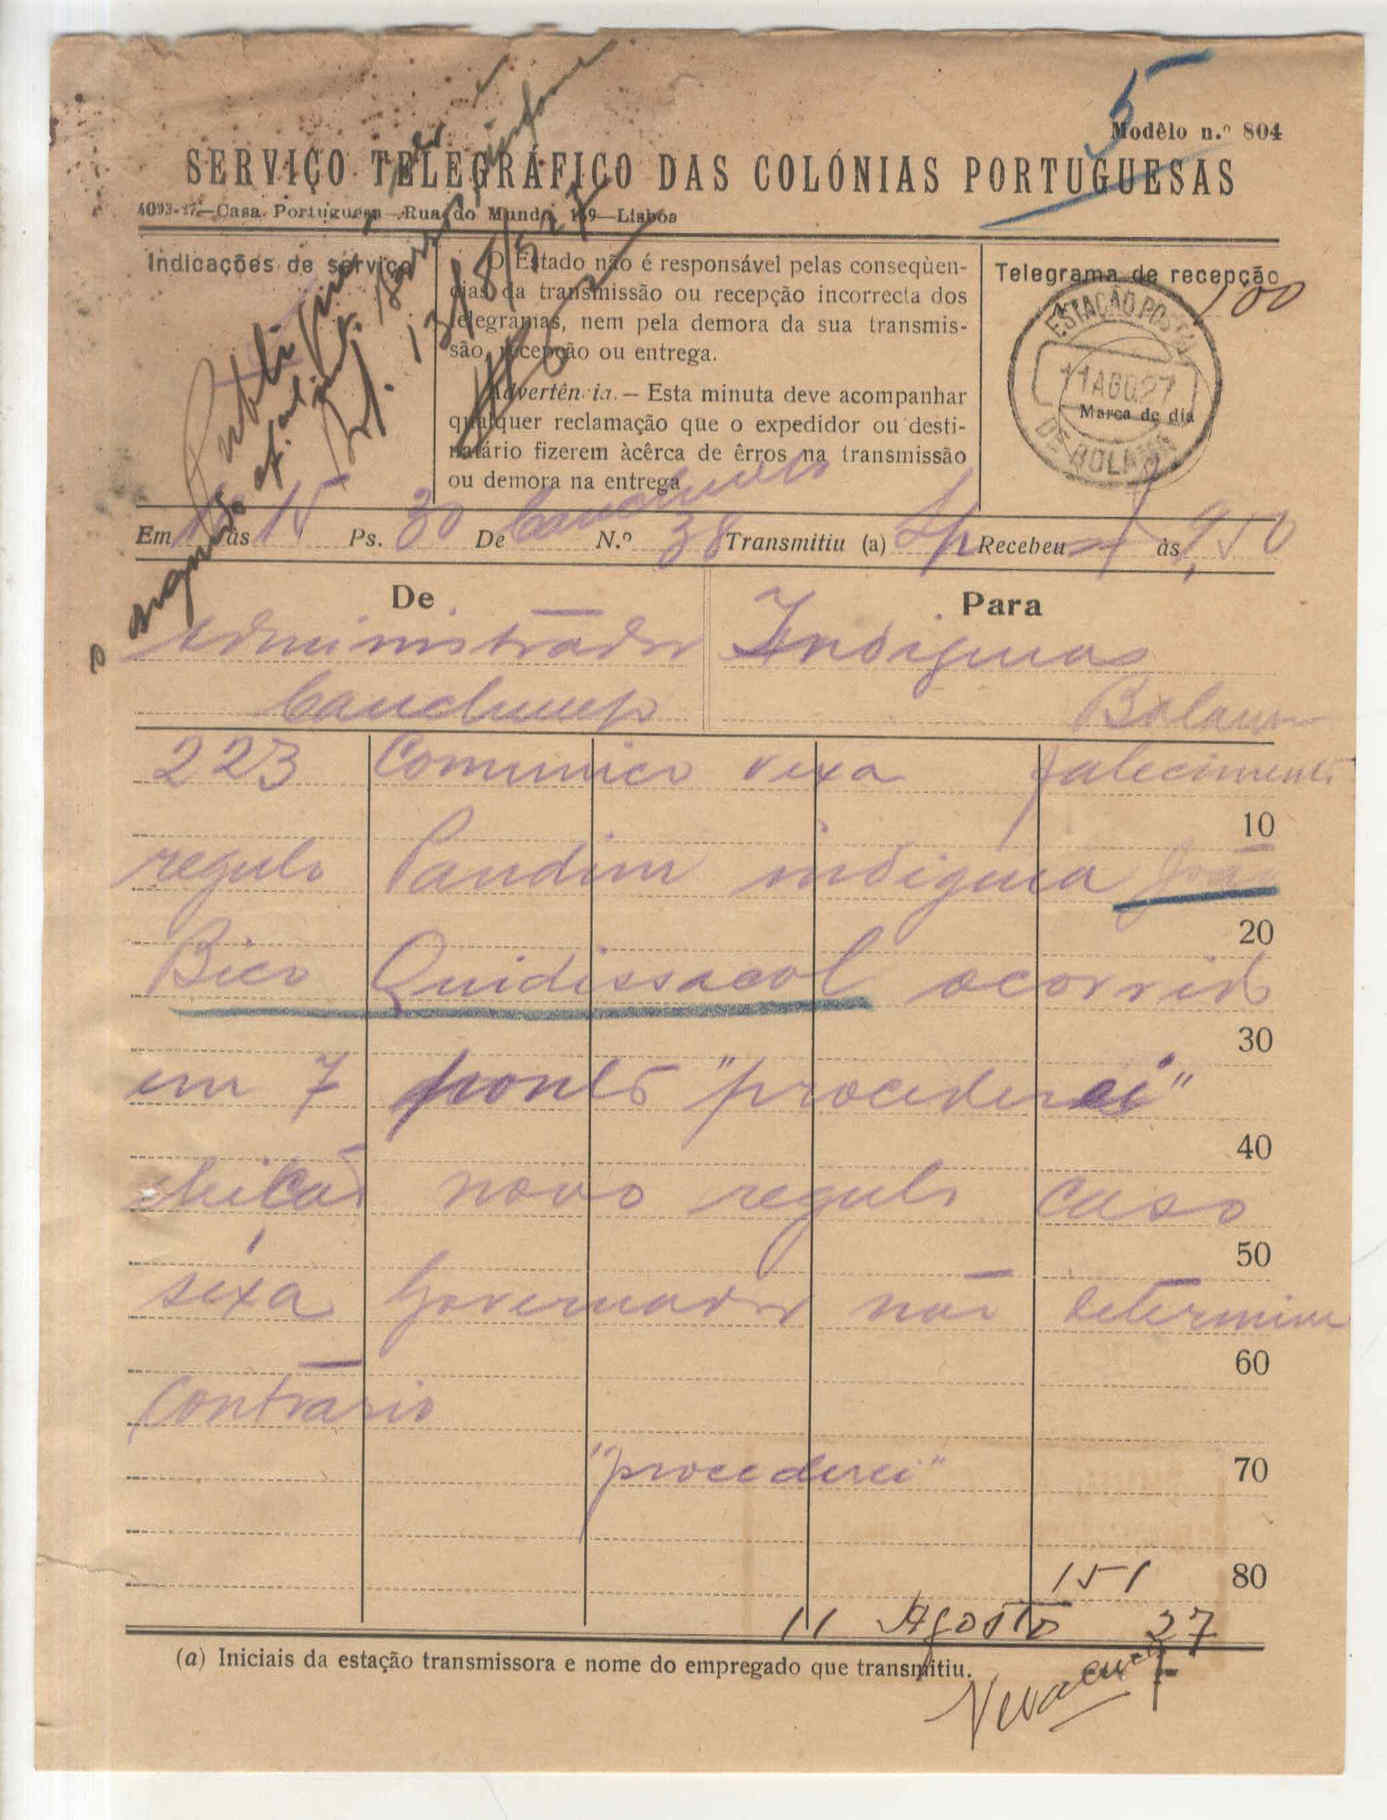 5
Modêlo n.º 804
SERVIÇO TELEGRÁFICO DAS COLÓNIAS PORTUGUESAS
4093-27—Casa Portuguesa—Rua do Mundo, 109—Lisboa
Indicações de serviço
O Estado não é responsável pelas conseqùen-
cias da transmissão ou recepção incorrecta dos
telegramas, nem pela demora da sua transmis-
são, recepção ou entrega.
Advertência.— Esta minuta deve acompanhar
qualquer reclamação que o expedidor ou desti-
natário fizerem àcêrca de êrros na transmissão
ou demora na entrega
Telegrama de recepção
100
ESTAÇÃO POSTAL
11 AGO. 27
Marca de dia
DE BOLAMA
13/8/927
Em às 15 Ps. 30 De N.º 38 Transmitiu (a) Recebeu às 9,50
De
Para
Administrador Indigenas
Bolama
223 Comunico vexa falecimento
10
regulo Pandim indigena João
20
Bico Quidissacol ocorrido
30
em 7 ponto "procederei"
40
eleicão novo regulo caso
50
sexa Governador não determine
60
Contrário
"procederei"
70
151
80
11 Agosto 27
(a) Iniciais da estação transmissora e nome do empregado que transmitiu.